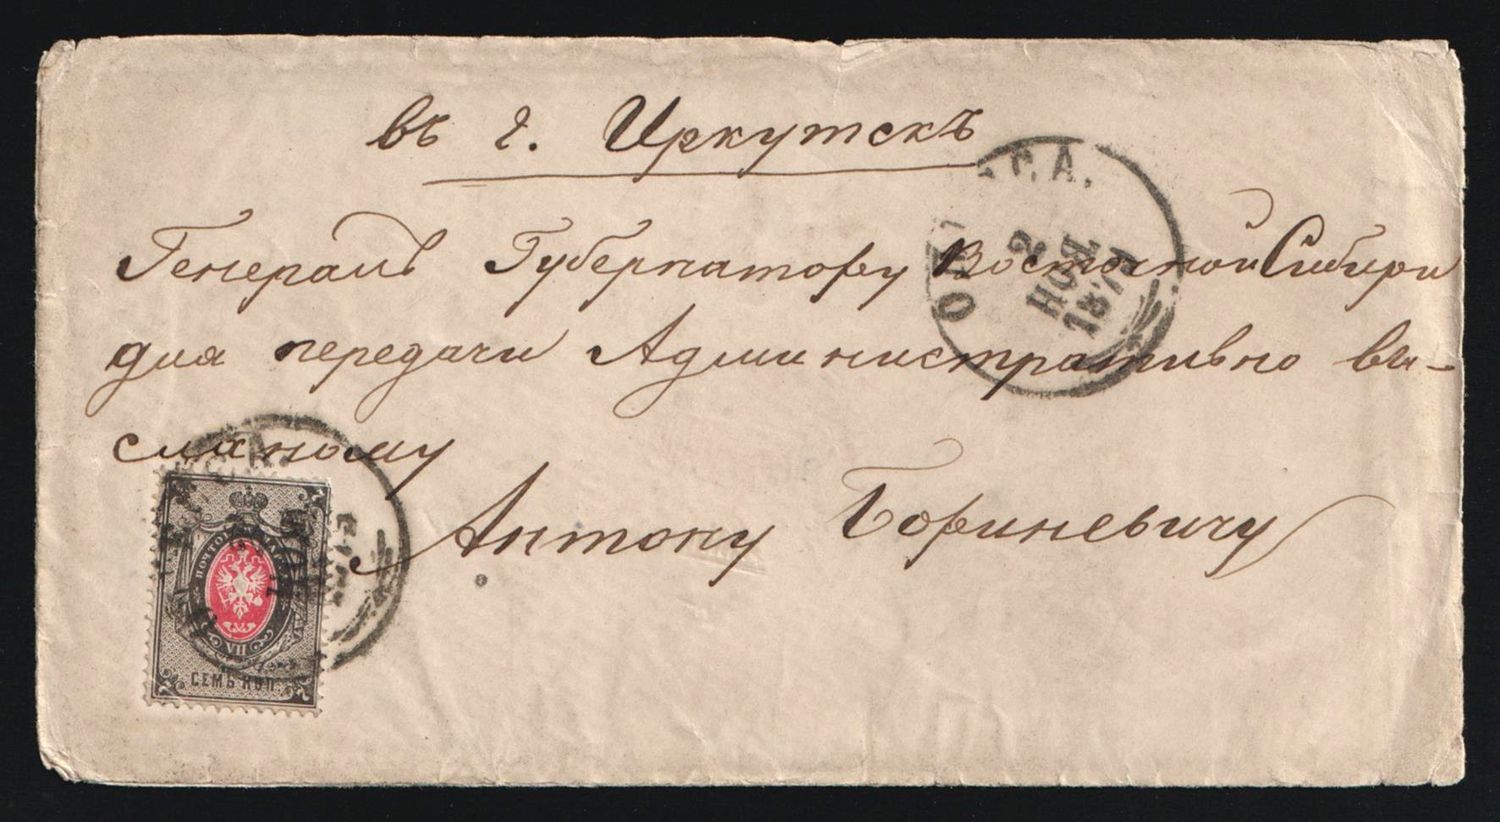 въ г. Иркутскъ
Генералъ Губернатору Восточной Сибири
для передачи Административно вы-
сланому
Антону Бориневичу
ОДЕССА.
2
НОЯ.
1879
СЕМЬ КОП.